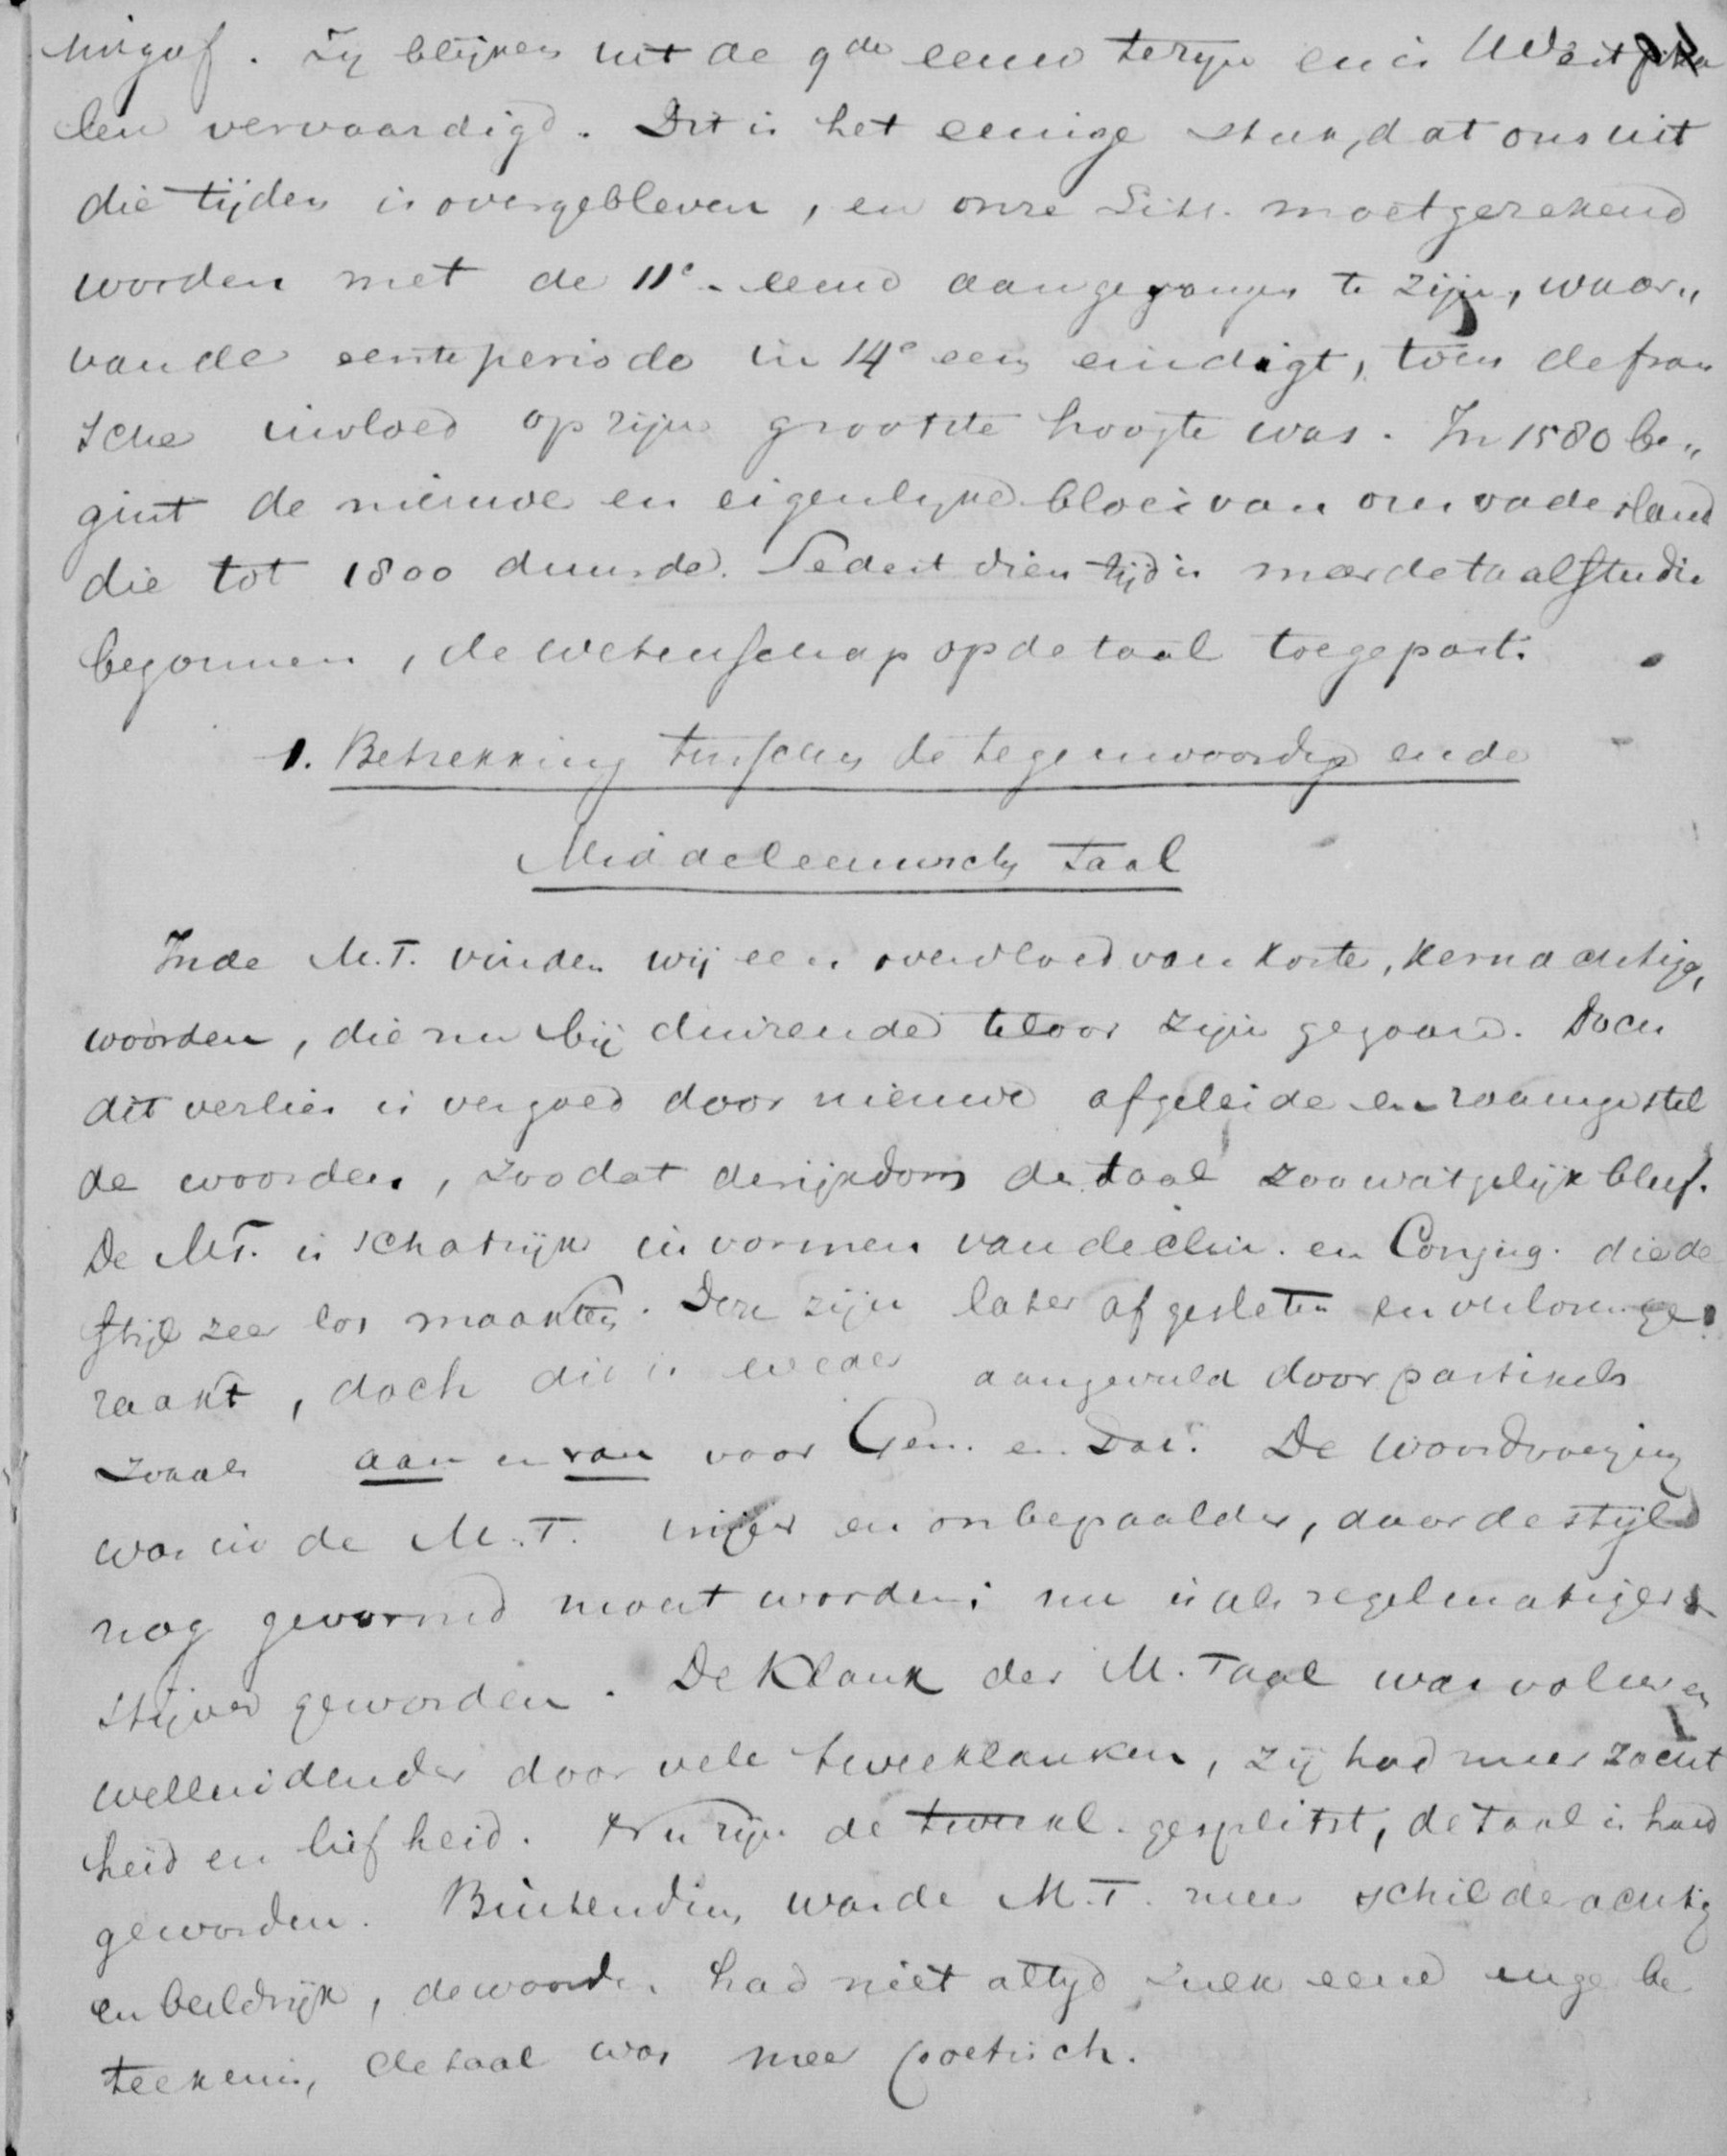 uitgaf. Zij blijken uit de 9de eeuw te zijn en in Westfa
len vervaardigd. Dit is het eenige stuk, dat ons uit
die tijden is overgebleven, en onze Litt. moet gerekend
worden met de 11e eeuw aangevangen te zijn, waar„
van de eerste periode in 14e eeuw eindigt, toen de fran
sche invloed op zijn grootste hoogte was. In 1580 be„
gint de nieuwe en eigenlijke bloei van ons vaderland
die tot 1800 duurde. Sedert dien tijd is meer de taalstudie
begonnen, de wetenschap op de taal toegepast.
1. Betrekking tusschen de tegenwoordige en de
Middeleeuwsche Taal
In de M.T. vinden wij een overvloed van korte, kernachtige,
woorden, die nu bij duizende teloor zijn gegaan. Doch
dit verlies is vergoed door nieuwe afgeleide en zaamgestel
de woorden, zoodat de rijkdom der taal zoowat gelijk bleef.
De M.T. is schatrijk in vormen van declin. en Conjug. die de
stijl zeer los maakten. Deze zijn later afgesleten en verloren ge
raakt, doch dit is weder aangevuld door partikels
zooals aan en van voor Gen. en Dat. De woordvoeging
was in de M.T. vrijer en onbepaalder, daar de stijl
nog gevormd moest worden; nu is alles regelmatiger &
stijver geworden. De Klank der M. Taal was voller en
welluidender door vele tweeklanken, zij had meer zacht
heid en liefheid. Nu zijn de tweekl. gesplitst, de taal is hard
geworden. Buitendien was de M.T. meer schilderachtig
en beeldrijk, de woorden had niet altijd zulk eene enge be
teekenis, de taal was meer poetisch.